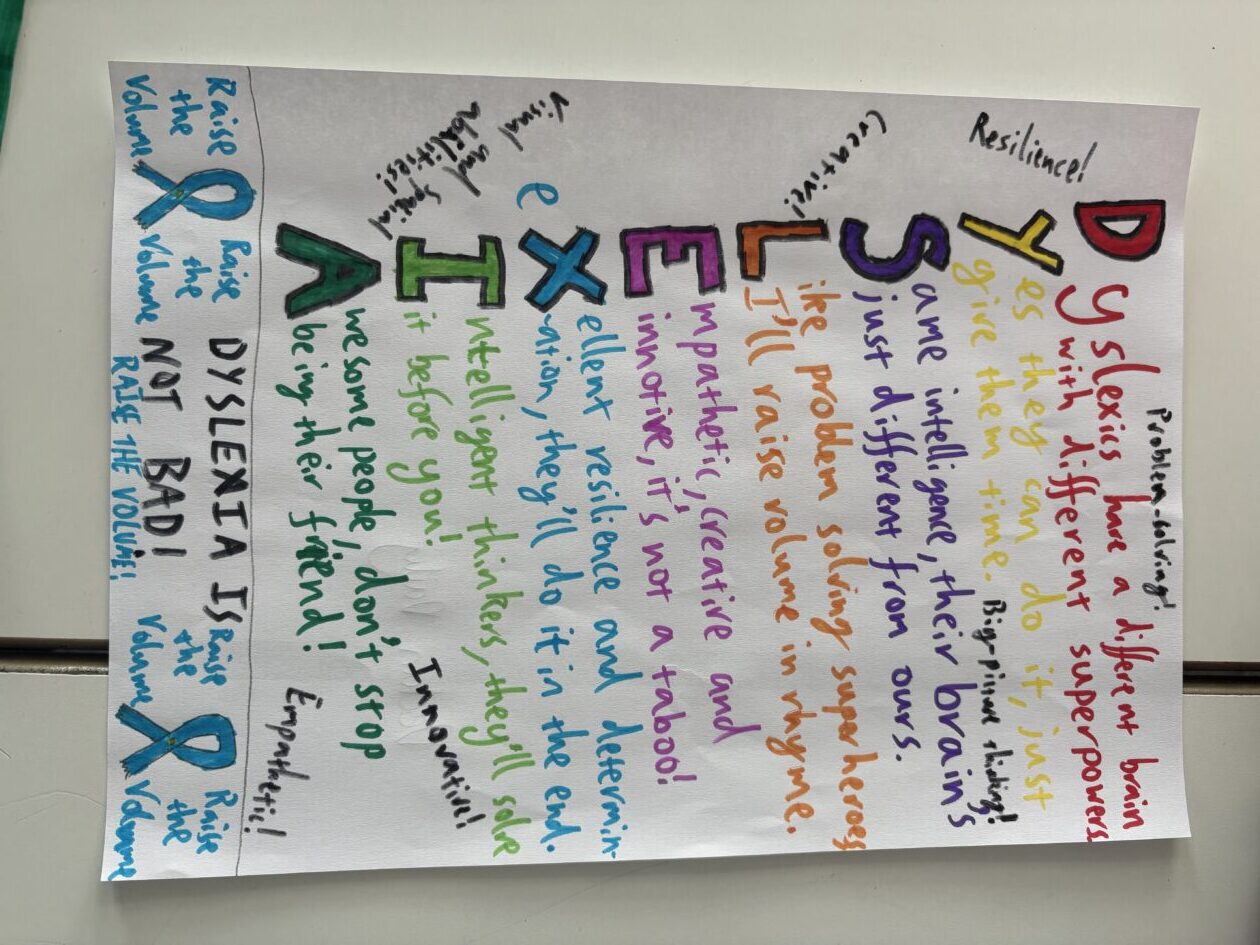 Problem-solving!
Resilience!
Dyslexics have a different brain
with different superpowers
Yes they can do it, just
give them time.
Big-picture thinking!
Creative!
Same intelligence, their brain's
just different from ours.
Like problem solving superheroes
I'll raise volume in rhyme.
Empathetic, creative and
innotive, it's not a taboo!
Visual
and spatial
abilities!
eXellent resilience and determin-
ation, they'll do it in the end.
Intelligent thinkers, they'll solve
it before you!
Innovative!
Awesome people, don't stop
being their friend!
Empathetic!
Raise
the
Volume
Raise
the
Volume
DYSLEXIA IS
NOT BAD!
RAISE THE VOLUME!
Raise
the
Volume
Raise
the
Volume